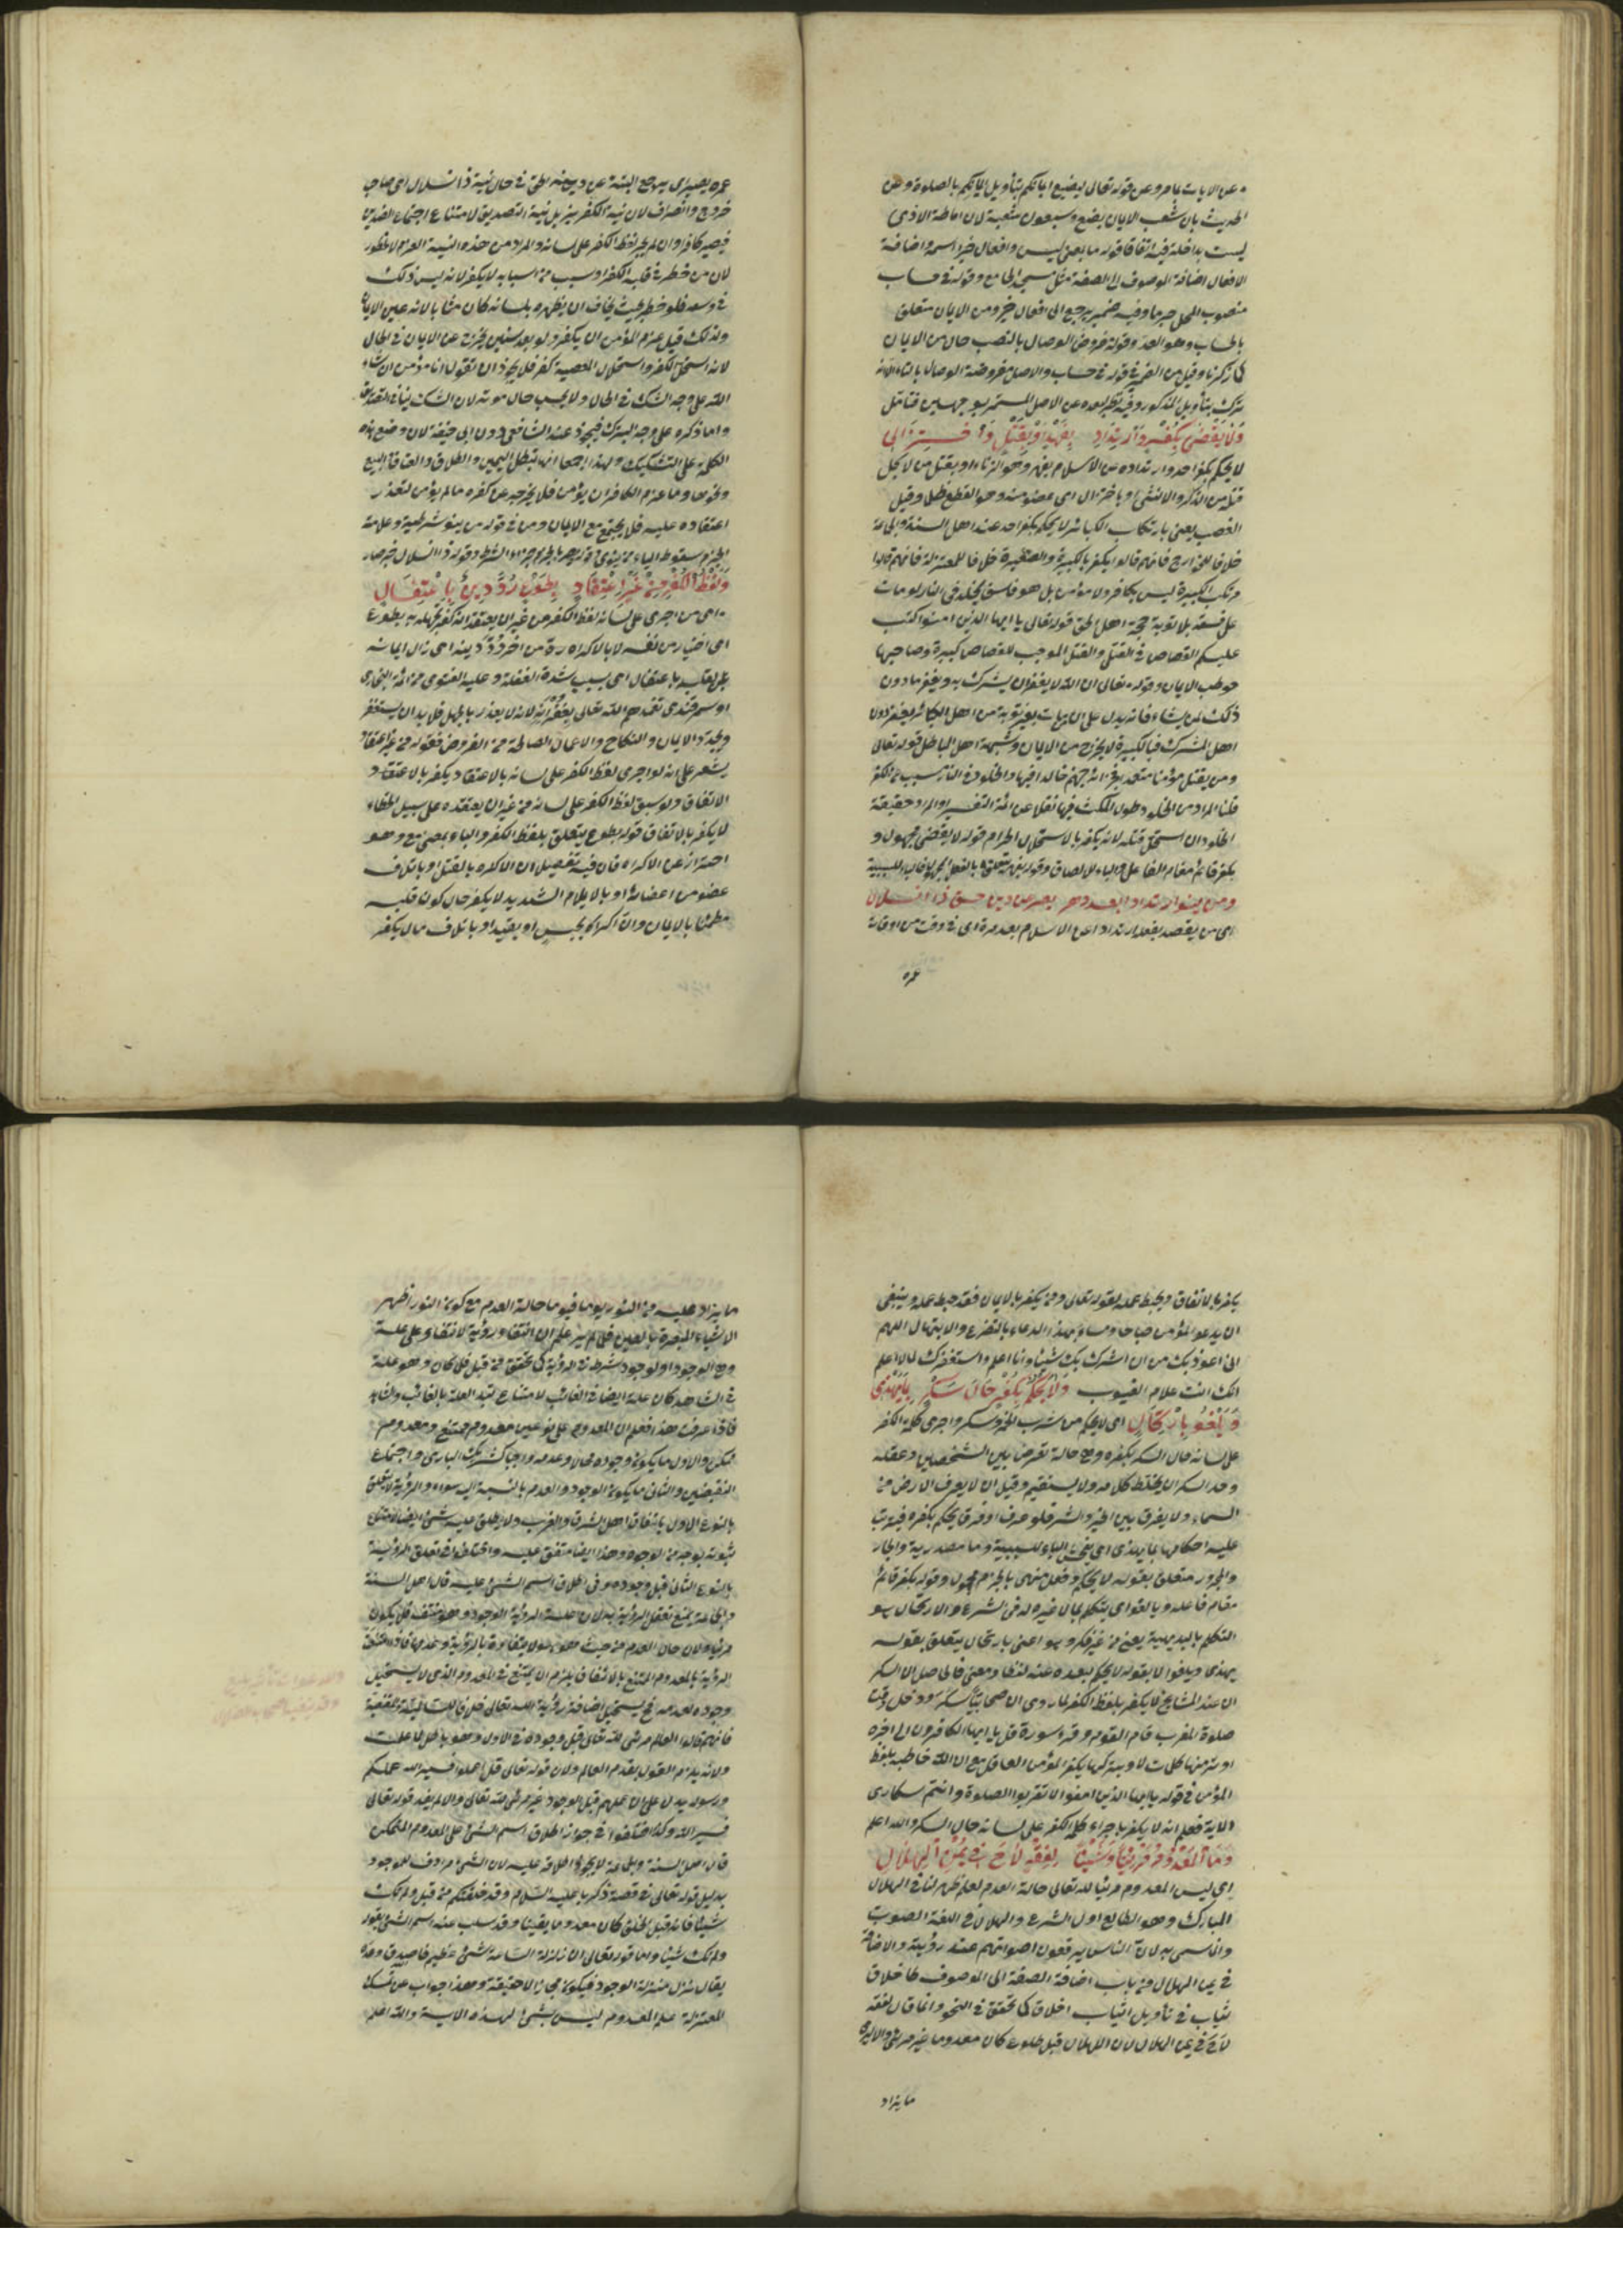 عن الايات بامر وعن قوله تعالى ليضيع ايمانكم بتأويل ايمانكم بالصلوة وعن
الحديث بان شعب الايمان بضع وسبعون شعبة لان اماطة الاذى
ليست بداخلة فيه اتفاقا قوله ما بمعنى ليس وافعال خير اسمه واضافة
الافعال اضافة الموصوف الى الصفة مثل مسجد الجامع وقوله في حساب
منصوب المحل خبر ما وفيه ضمير يرجع الى افعال خير ومن الايمان متعلق
بالحساب وهو العد وقوله مفروض الوصال بالنصب حال من الايمان
كما ذكرنا وقيل من الضمير في قوله في حساب والاصل مفروضة الوصال بالتاء الا انه
ترك بتأويل المذكور وفيه نظر لبعده عن الاصل المستمر بوجهين فتأمل
وَلَا يُقْضَى بِكُفْرٍ وَارْتِدَادٍ بِعَهْرٍ اَوْ بِقَتْلٍ وَاخْتِزَالِ
لا يحكم بكفر احد وارتداده عن الاسلام بعهر وهو الزناء او بقتل من لا يحل
قتله من الذكر والانثى او باختزال اى عضو منه وهو القطع ظلما وقيل
الغصب يعنى بارتكاب الكبائر لا يحكم بكفر احد عند اهل السنة والجماعة
خلافا للخوارج فانهم قالوا يكفر بالكبيرة والصغيرة خلافا للمعتزلة فانهم قالوا
مرتكب الكبيرة ليس بكافر ولا مؤمن بل هو فاسق يخلد فى النار لو مات
على فسقه بلا توبة حجة اهل الحق قوله تعالى يا ايها الذين امنوا كتب
عليكم القصاص فى القتلى والقتل الموجب للقصاص كبيرة وصاحبها
خوطب بالايمان وقوله تعالى ان الله لا يغفر ان يشرك به ويغفر ما دون
ذلك لمن يشاء فانه يدل على ان من مات بغير توبة من اهل الكبائر يغفر دون
اهل الشرك فبالكبيرة لا يخرج من الايمان وشبهة اهل الباطل قوله تعالى
ومن يقتل مؤمنا متعمدا فجزاؤه جهنم خالدا فيها والخلود فى النار بسبب الكفر
قلنا المراد من الخلود طول المكث فيها نقلا عن ائمة التفسير او المراد حقيقة
الخلود ان استحل قتله لانه يكفر بالاستحلال الحرام قوله لا يقضى مجهول و
بكفر قائم مقام الفاعل والباء للالصاق وقوله بعهر متعلق بالفعل المجهول فالباء للسببية
ومن ينو ارتدادا بعد دهر يصر عن دين حق ذا انسلال
اى من يقصد بفعله ارتدادا عن الاسلام بعد مدة اى فى وقت من اوقات
عمره
عمره يصير اى يرجع البتة عن دين حق فى حال نية ذا انسلال اى صاحب
خروج وانصراف لان نية الكفر يزيل نية التصديق لامتناع اجتماع الضدين
فيصير كافرا وان لم يجر لفظ الكفر على لسانه والمراد من هذه النية العزم لا الخطور
لان من خطر فى قلبه الكفر او سبب من اسبابه لا يكفر لانه ليس ذلك
فى وسعه فلو خطر بحيث يخاف ان يظهره بلسانه كان مثابا لانه عين الايمان
ولذلك قيل عزم المؤمن ان يكفر ولو بعد سنين يخرج عن الايمان فى الحال
لانه استحل الكفر واستحلال المعصية كفر فلا يجوز ان تقول انا مؤمن ان شاء
الله على وجه الشك فى الحال ولا يحسب حال موته لان الشك ينافى التصديق
واما ذكره على وجه التبرك فيجوز عند الشافعى دون ابى حنيفة لان وضع هذه
الكلمة على التشكيك ولهذا اجمعا انها تبطل اليمين والطلاق والعتاق والبيع
ونحوها وما عزم الكافر ان يؤمن فلا يخرجه عن كفره ما لم يؤمن لتعذر
اعتقاده عليه فلا يجتمع مع الايمان ومن فى قوله من ينو شرطية وعلامة
الجزم سقوط الياء من ينوى وقوله يصر بالجزم جزاء الشرط وقوله ذا انسلال خبر صار
وَلَفْظُ الْكُفْرِ مِنْ غَيْرِ اعْتِقَادٍ بِطَوْعٍ رَدُّ دِينٍ بِاغْتِفَالِ
اى من اجرى على لسانه لفظ الكفر من غير ان يعتقد انه كفر لجهله به بطوع
اى اختيار من نفسه لا بالاكراه ردة من اخر رد دينه اى زال ايمانه
عن قلبه باغتفال اى بسبب شدة الغفلة وعليه الفتوى من ائمة البخارى
او سمرقندى تغمدهم الله تعالى بغفرانه لانه لا يعذر بالجهل فلا بد ان يستغفر
ويجدد الايمان والنكاح والاعمال الصالحة من الفروض فقوله من غير اعتقاد
يشعر على انه لو اجرى لفظ الكفر على لسانه بالاعتقاد يكفر بالاعتقاد
الاتفاق ولو سبق لفظ الكفر على لسانه من غير ان يعتقده على سبيل الخطاء
لا يكفر بالاتفاق قوله بطوع يتعلق بلفظ الكفر والباء بمعنى مع وهو
احترازا عن الاكراه فان فيه تفصيل ان الاكراه بالقتل او باتلاف
عضو من اعضائه او بالايلام الشديد لا يكفر حال كون قلبه
مطمئنا بالايمان وان اكره بحبس او بقيد او باتلاف مال يكفر
يكفر بالاتفاق ويحبط عمله لقوله تعالى ومن يكفر بالايمان فقد حبط عمله وينبغى
ان يدعو المؤمن صباحا ومساء بهذا الدعاء بالتضرع والابتهال اللهم
انى اعوذ بك من ان اشرك بك شيئا وانا اعلم واستغفرك لما لا اعلم
انك انت علام الغيوب وَلَا يُحْكَمْ بِكُفْرٍ حَالَ سُكْرٍ بِمَا يَهْذِى
وَيَلْغُو بِارْتِجَالِ اى لا يحكم من شرب الخمر وسكر واجرى كلمة الكفر
على لسانه حال السكر بكفره وهى حالة تعرض بين الشخص وعقله
وحد السكر ان يختلط كلامه ولا يستقيم وقيل ان لا يعرف الارض من
السماء ولا يفرق بين الخير والشر فلو عرف او فرق يحكم بكفره فيترتب
عليه احكامه بما يهذى اى يفحش الباء للسببية وما مصدرية والجار
والمجرور متعلق بقوله لا يحكم وفعل منهى بالجزم مجهول وقوله بكفر قائم
مقام فاعله ويلغو اى يتكلم بما لا خير له فى الشرع والارتجال هو
التكلم بالبديهية يعنى من غير فكر وهو اعنى بارتجال يتعلق بقوله
يهذى ويلغو لا بقوله لا يحكم لبعده عنه لفظا ومعنى فالحاصل ان السكر
ان عند المشايخ لا يكفر بلفظ الكفر لما روى ان صحابيا سكر ودخل وقت
صلوة المغرب فام القوم وقرء سورة قل يا ايها الكافرون الى اخره
المؤمن فى قوله يا ايها الذين امنوا لا تقربوا الصلوة وانتم سكارى
الاية فعلم انه لا يكفر باجراء كلمة الكفر على لسانه حال السكر والله اعلم
وَمَا الْمَعْدُومُ مَرْئِيًّا وَشَيْئًا لِفِقْهٍ لَاحَ فِى يُمْنِ الْهِلَالِ
اى ليس المعدوم مرئيا لله تعالى حالة العدم لعلم ظهر لنا فى الهلال
المبارك وهو الطالع اول الشرع والهلال فى اللغة الصوت
وانما سمى به لان الناس يرفعون اصواتهم عند رؤيته والاضافة
فى يمن الهلال من باب اضافة الصفة الى الموصوف كاخلاق
ثياب فى تأويل الثياب اخلاق كما تحقق فى النحو وانما قال لفقه
لاح فى يمن الهلال لان الهلال قبل طلوعه كان معدوما غير مرئى والايرى
ما يزاد
ما يزاد عليه من النور يوما فيوما حالة العدم مع كون النور اظهر
الاشياء المبصرة بالعين فلما لم ير علم ان انتفاء رؤيته لانتفاء على علة
وهى الوجود اولوجود شرط فى الرؤية كما تحقق من قبل فلما كان وهو علة
فى الشاهد كان علة ايضا فى الغائب لامتناع تبدل العلة بالغائب والشاهد
فاذا عرفت هذا فعلم ان المعدوم على نوعين معدوم ممتنع ومعدوم
ممكن والاول ما يكون وجوده محالا وعدمه واجبا كشريك البارى واجتماع
النقيضين والثانى ما يكون الوجود والعدم بالنسبة اليه سواء والرؤية لا يتعلق
بالنوع الاول باتفاق اهل الشرق والغرب ولا يطلق عليه شئ ايضا لامتناع
ثبوته بوجه من الوجوه وهذا ايضا متفق عليه واختلفوا فى تعلق الرؤية
بالنوع الثانى قبل وجوده وفى اطلاق اسم الشئ عليه قال اهل السنة
والجماعة يمتنع تعلق الرؤية به لان علة الرؤية الوجود وهو منتف فلا يكون
الرؤية بالمعدوم الممتنع بالاتفاق يلزم ان يمتنع فى المعدوم الذى لا يستحيل
وجوده لعدمه فح يستحيل اضافة رؤية الله تعالى خلافا للسالمية والمقنعية
فانهم قالوا العالم مرئى لله تعالى قبل وجوده فى الاول وهو باطل لما علمت
ولانه يلزم القول بقدم العالم ولان قوله تعالى قل اعملوا فسيرى الله عملكم
ورسوله يدل على ان عملهم قبل الوجود غير مرئى لله تعالى والا لم يفد قوله تعالى
فسيرى الله وكذا اختلفوا فى جواز اطلاق اسم الشئ على المعدوم الممكن
قال اهل السنة والجماعة لا يجوز اطلاقه عليه لان الشئ مرادف للموجود
بدليل قوله تعالى فى قصة زكريا عليه السلام وقد خلقتكم من قبل ولم تك
شيئا فانه قبل الخلق كان معدوما يقينا وقد سلب عنه اسم الشئ بقوله
ولم تك شيئا واما قوله تعالى ان زلزلة الساعة شئ عظيم فاصدق وعده
يقال نزل منزلة الوجود فيكون مجازا لا حقيقة وهذا جواب عن تمسك
المعتزلة على المعدوم ليس بشئ لهذه الاية والله اعلم